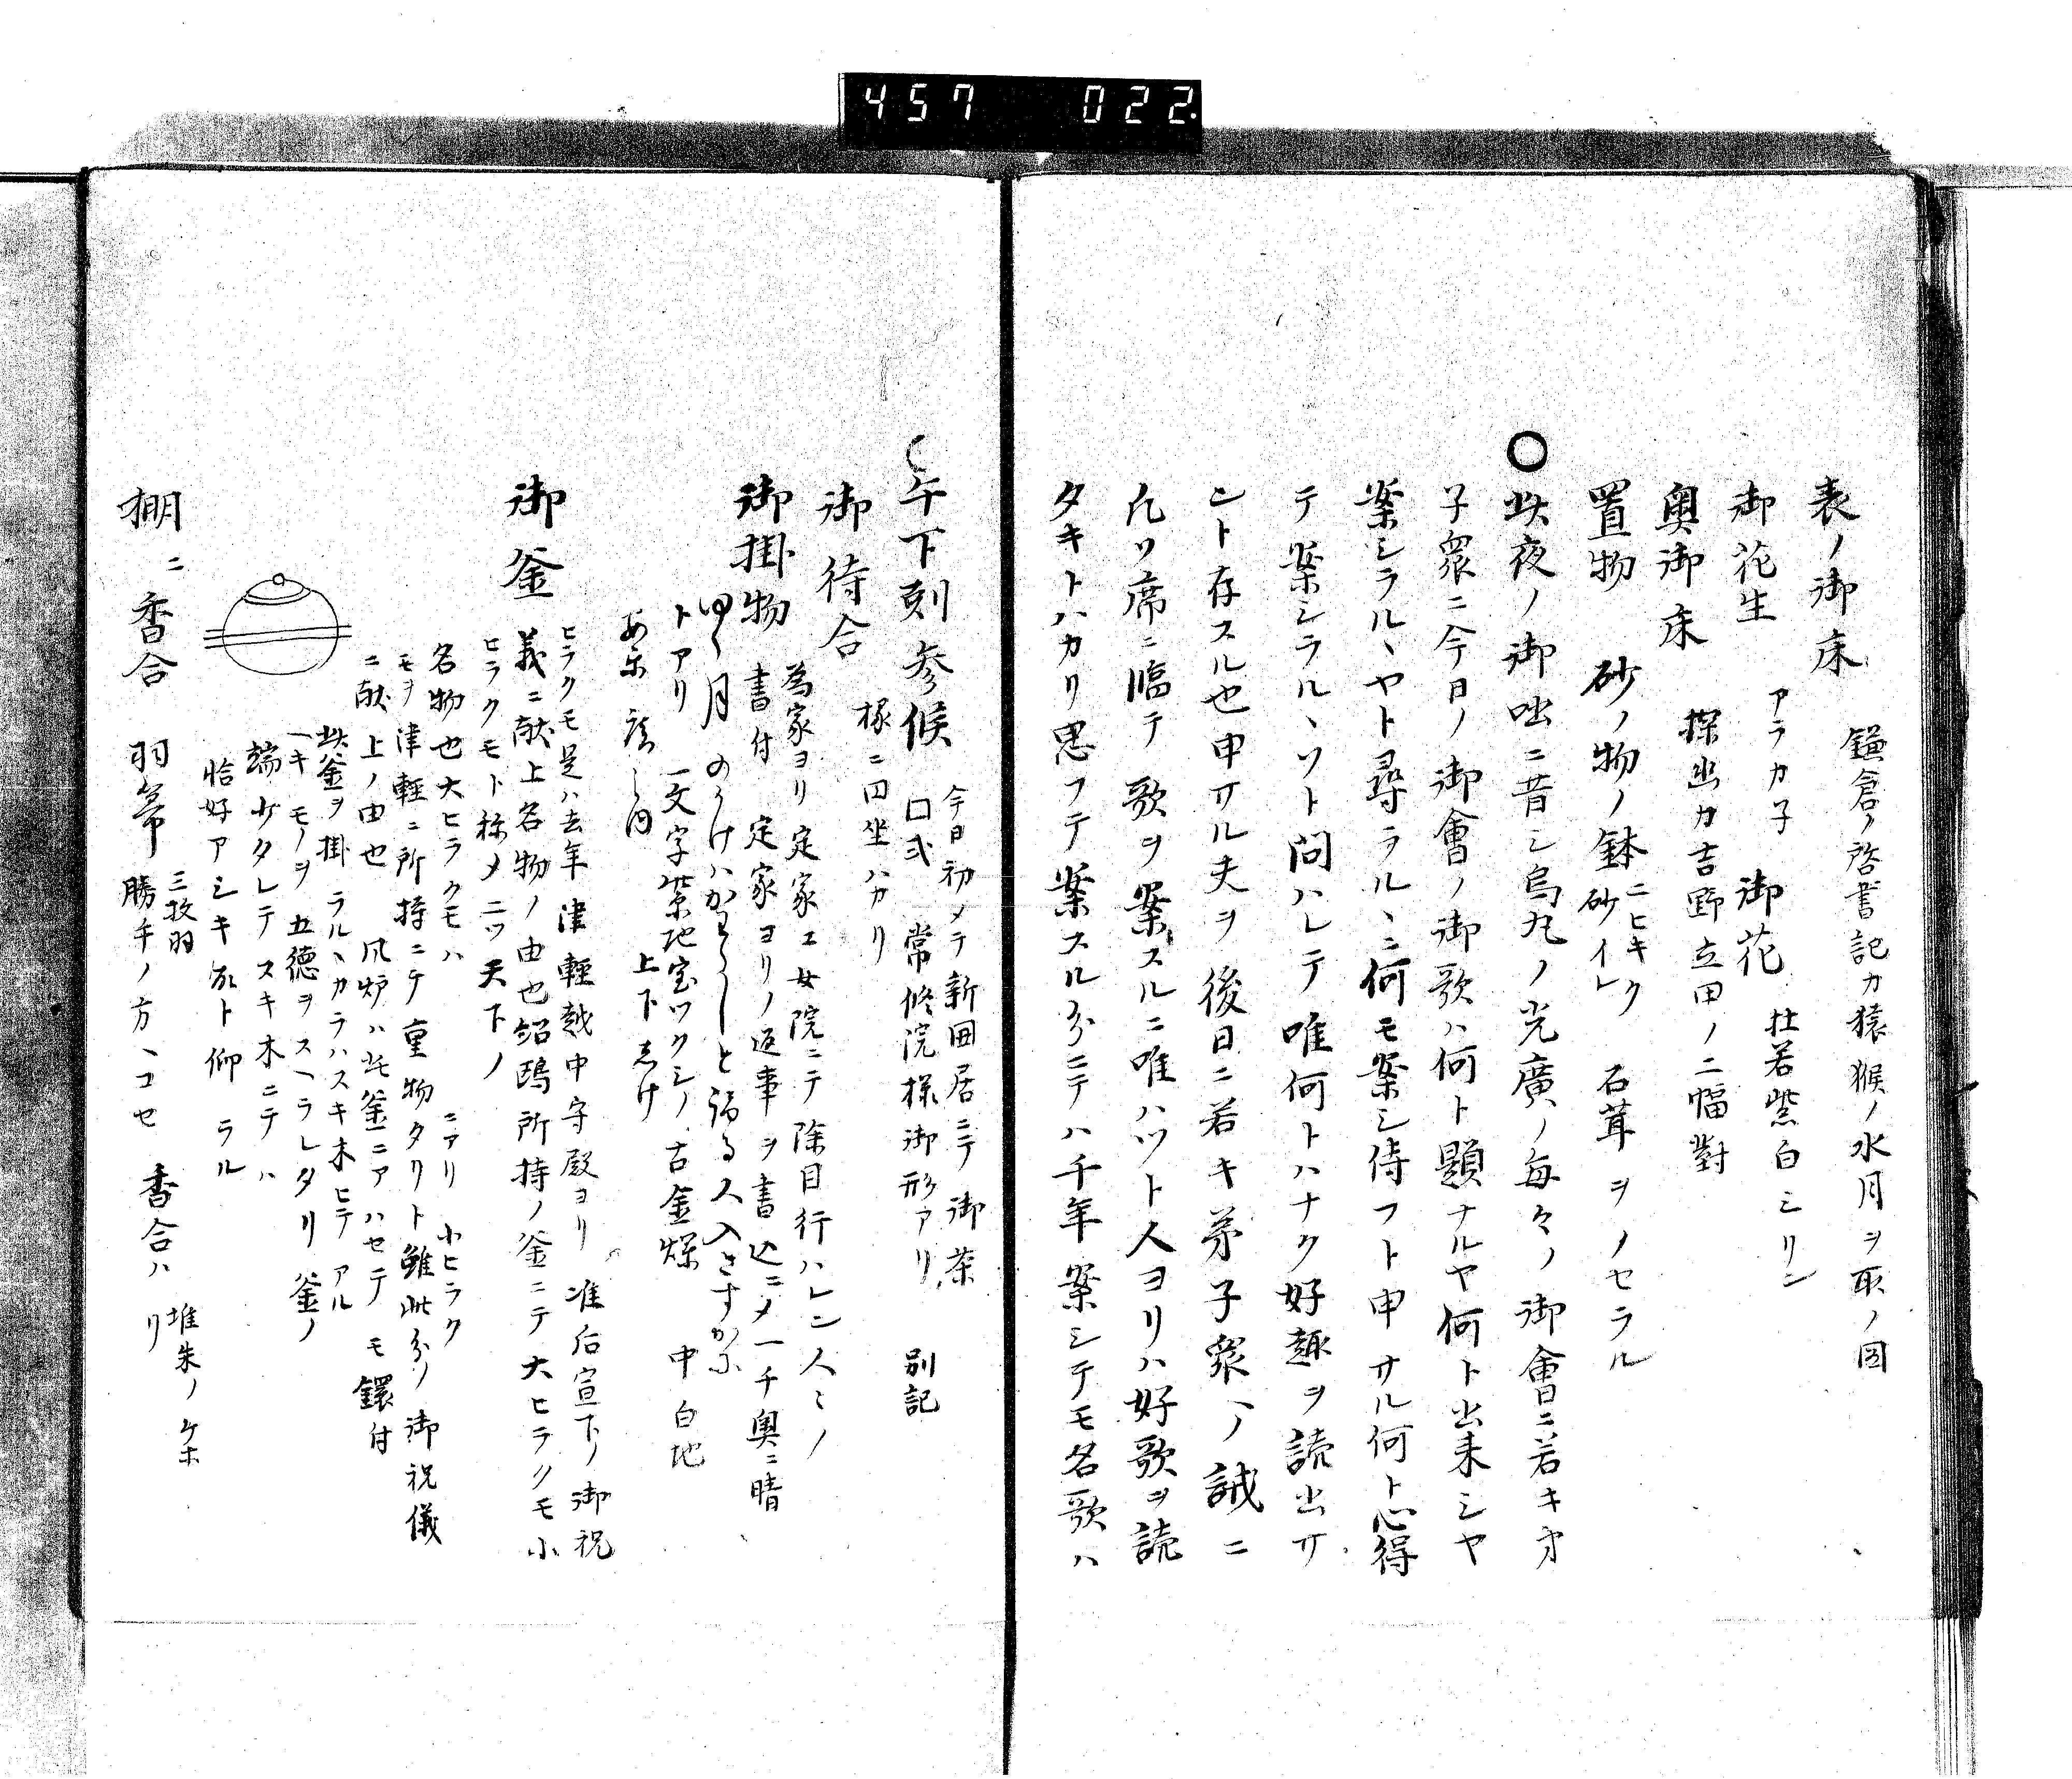 457 022.
表ノ御床 鎌倉ノ啓書記カ猿猴ノ水月ヲ取ノ図
御花生 アラカ子 御花 杜若紫白シリン
奥御床 探幽カ吉野立田ノ二幅對
置物 砂ノ物ノ鉢ニヒキク砂イレ 石茸ヲノセラル
〇此夜ノ御咄ニ昔シ烏丸ノ光廣ノ毎々ノ御會ニ若キ才
子衆ニ今日ノ御會ノ御歌ハ何ト題ナルヤ何ト出来シヤ
案シラルヽヤト尋ラルヽニ何モ案シ侍フト申サル何ト心得
テ案シラルヽソト問ハレテ唯何トハナク好趣ヲ読出サ
ント存スル也申サル夫ヲ後日ニ若キ弟子衆ヘノ誡ニ
凡ソ席ニ臨テ歌ヲ案スルニ唯ハツト人ヨリハ好歌ヲ読
タキトハカリ思フテ案スル分ニテハ千年案シテモ名歌ハ
午下刻参候 今日初メテ新囲居ニテ御茶
口弐 常修院様御形アリ 別記
御待合 椽ニ円坐ハカリ
御掛物 為家ヨリ定家エ女院ニテ除目行ハレン人々ノ
書付 定家ヨリノ返事ヲ書込ニメ一チ奥ニ晴
トアリ 一文字紫地宝ツクシノ古金襴 中白地
上下しけ
御釜 ヒラクモ是ハ去年津軽越中守殿ヨリ准后宣下ノ御祝
義ニ献上名物ノ由也紹鴎所持ノ釜ニテ大ヒラクモ小
ヒラクモト称メ二ツ天下ノ
名物也大ヒラクモハ ニアリ 小ヒラク
モヲ津軽ニ所持ニテ重物タリト雖此分ノ御祝儀
ニ献上ノ由也 風炉ハ此釜ニアハセテモ鐶付
此釜ヲ掛ラルヽカラハスキ木ヒテアル
ヘキモノヲ五徳ヲスヘラレタリ釜ノ
端少タレテスキ木ニテハ
恰好アシキ故ト仰ラル
棚ニ香合 羽箒 三枚羽 勝手ノ方ヘコセ 香合ハ堆朱ノ